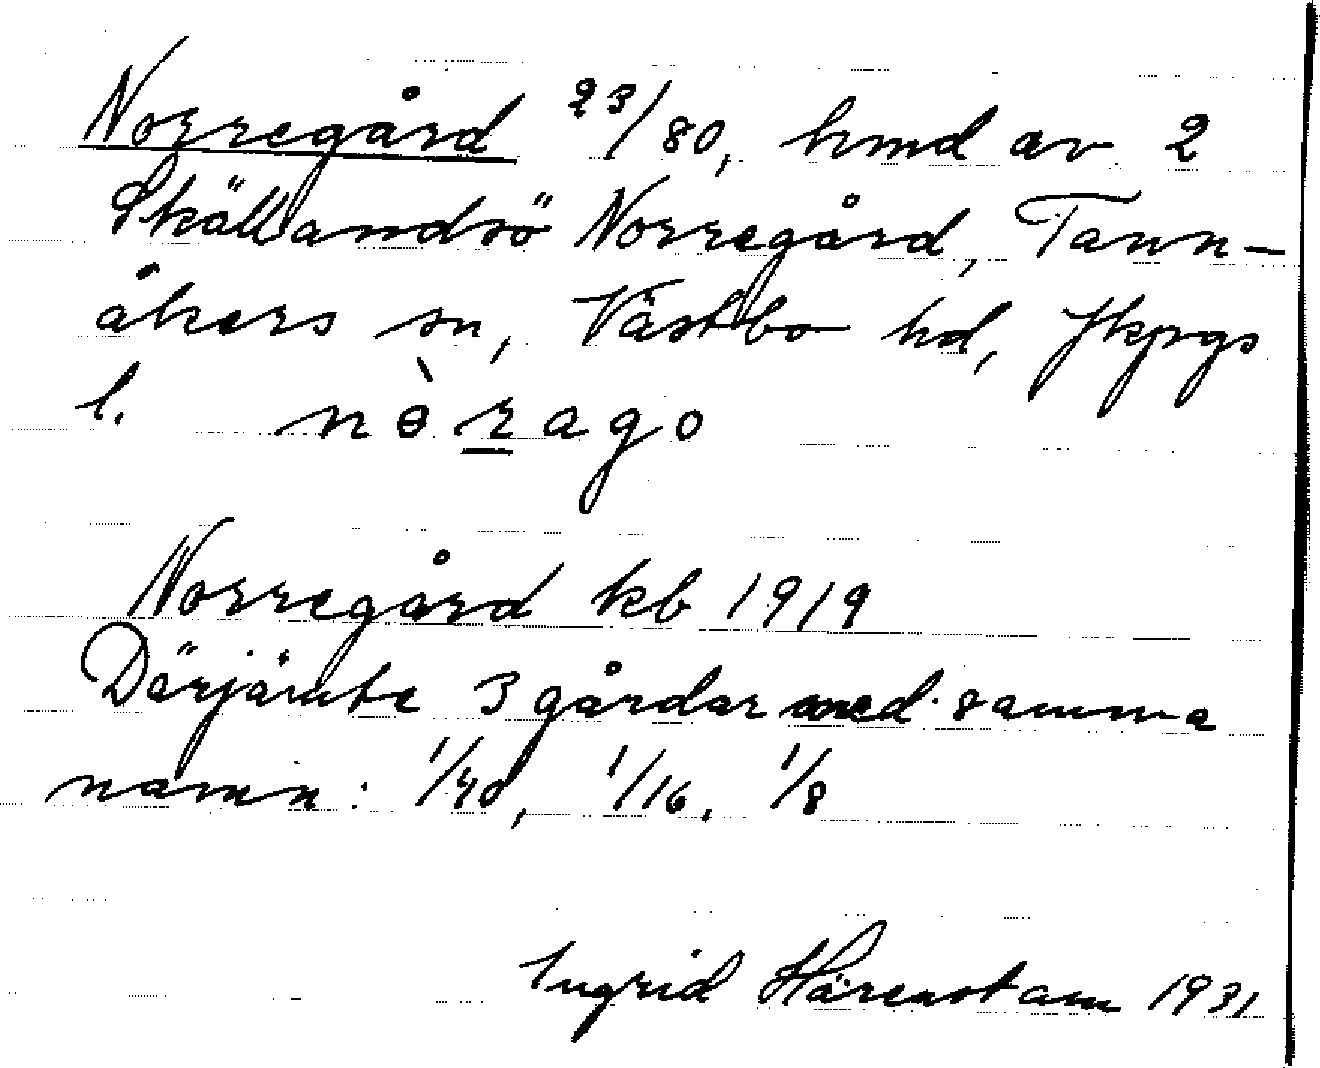 Norregård 23/80, hmd av 2
Skällandsö Norregård, Tann-
åkers sn, Västbo hd, Jkpgs
l. nɵ̀ṟago
Norregård kb 1919
Därjämte 3 gårdar med samma
namn: 1/40, 1/16, 1/8
Ingrid Härenstam 1931